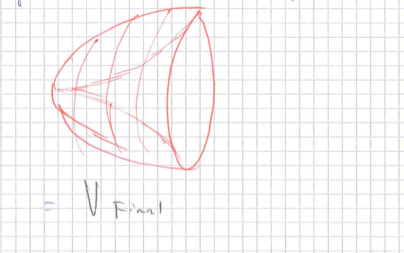 = V Final